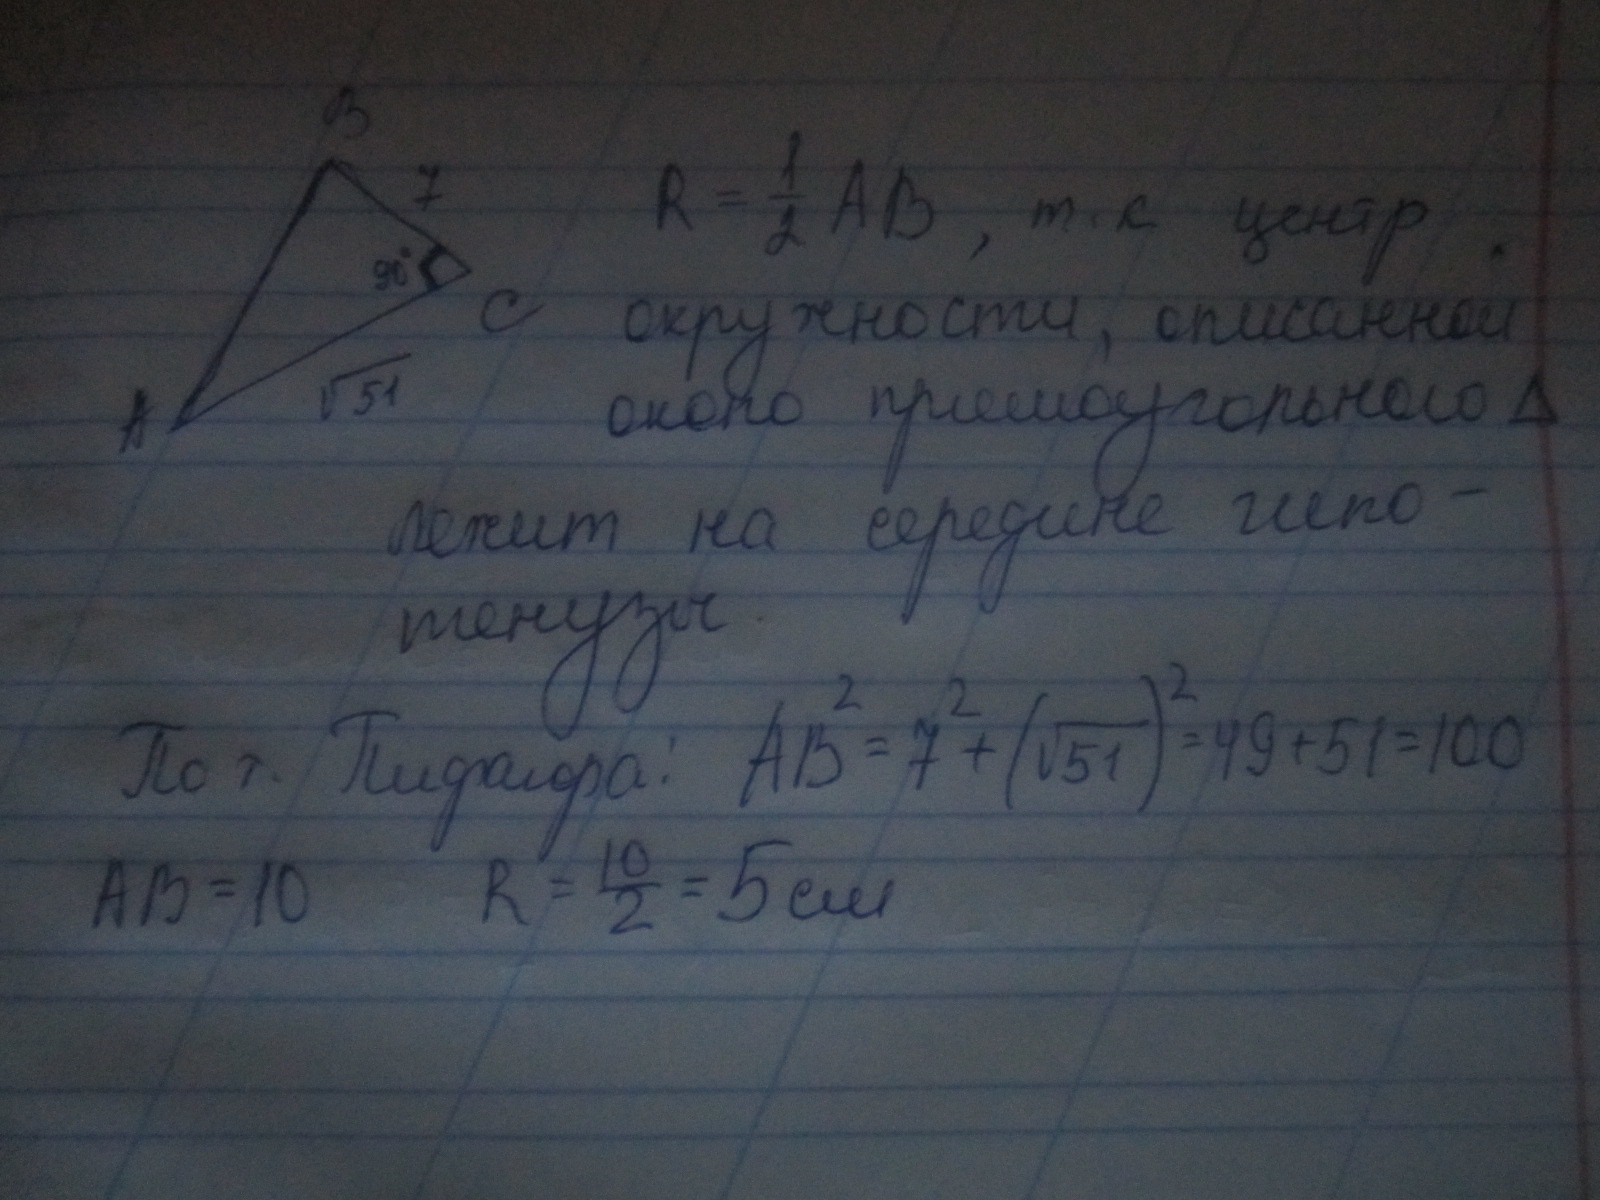 B
7
90°
C
√51
A
R = 1/2 AB, т.к центр
окружности, описанной
около прямоугольного Δ
лежит на середине гипо-
тенузы.
По т. Пифагора: AB² = 7² + (√51)² = 49 + 51 = 100
AB = 10 R = 10/2 = 5 см